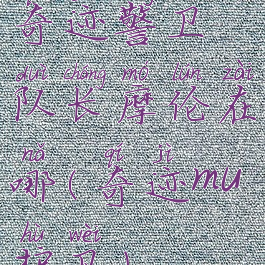 奇迹警卫
duì cháng mó lún zài
队长摩伦在
nǎ qí jì
哪(奇迹mu
hù wèi
护卫)